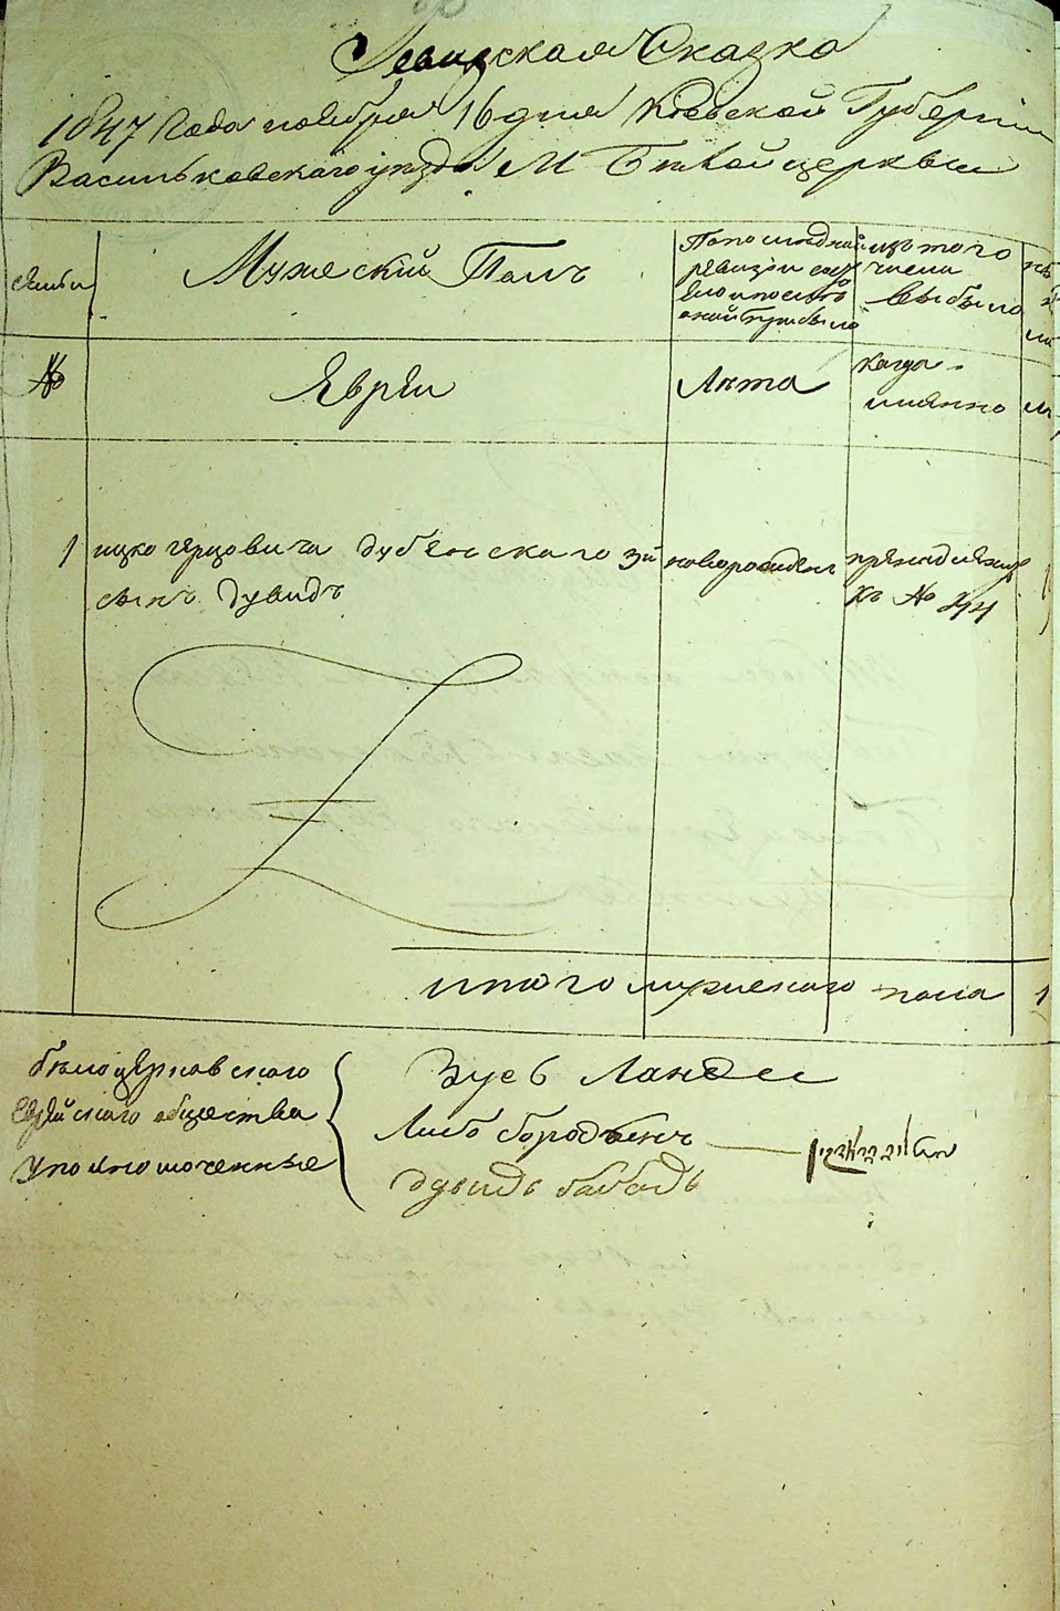 Ревизская Сказка
1847 Года ноября 16 дня Киевской Губернии
Васильковского уезда М Белой церквы
семьи
Мужеский Полъ
По последней
ревизии состо
яло и после
оной прибыло
изъ того
числа
выбыло
№
Евреи
Лета
когда
именно
1 ицко герцовича дубенскаго 3й новорожденъ
сынъ Дувидъ
къ № 44
итого мужескаго пола 1
белоцерковского
Еврейскаго общества
уполномоченные
Зусь Ландес
Лейб бородянъ
дувидъ бабадъ